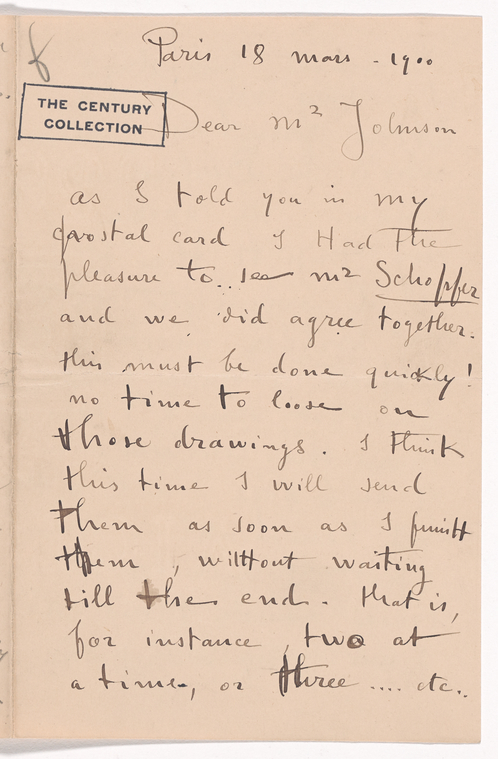 Paris 18 mars - 1900
THE CENTURY
COLLECTION
Dear Mr Johnson
as I told you in my
postal card I Had the
pleasure to.. see Mr Schopfer
and we did agree together.
this must be done quickly!
no time to loose on
those drawings. I think
this time I will send
them as soon as I finish
them, without waiting
till the end. that is,
for instance, two at
a time, or three .... etc..